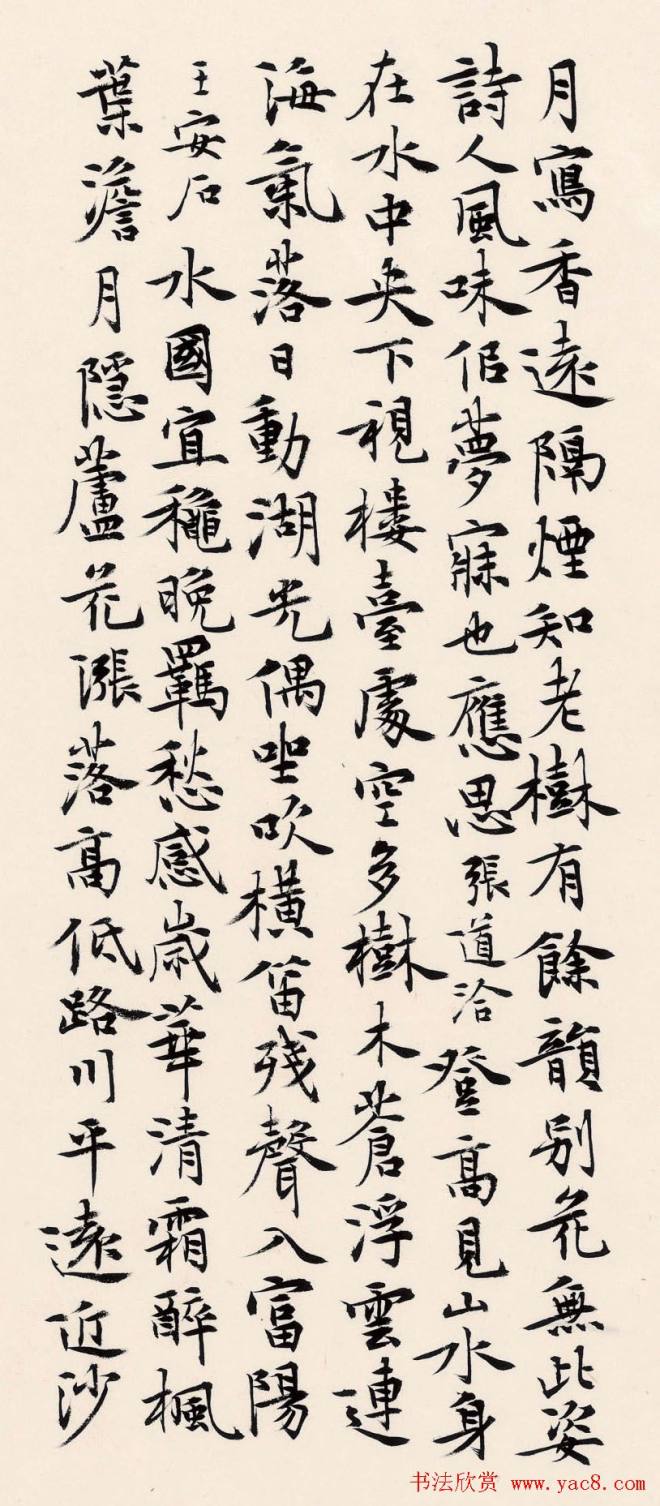 月寫香遠隔煙知老樹有餘韻別花無此姿
詩人風味佀夢寐也應思張道洽登高見山水身
在水中央下視樓臺處空多樹木蒼浮雲連
海氣落日動湖光偶坐吹橫笛殘聲入富陽
王安石水國宜穐晚羈愁感歲華清霜醉楓
葉澹月隱蘆花漲落高低路川平遠近沙
书法欣赏 www.yac8.com